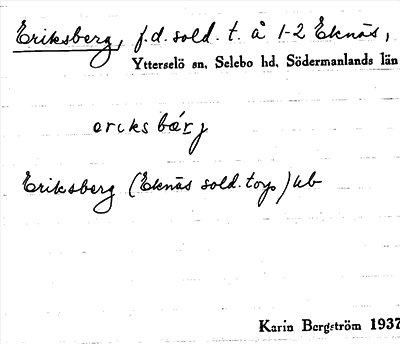 Eriksberg, f.d. sold. t. å 1-2 Eknäs,
Ytterselö sn, Selebo hd, Södermanlands län
Eriksberg (Eknäs sold. torp) kb
Karin Bergström 1937